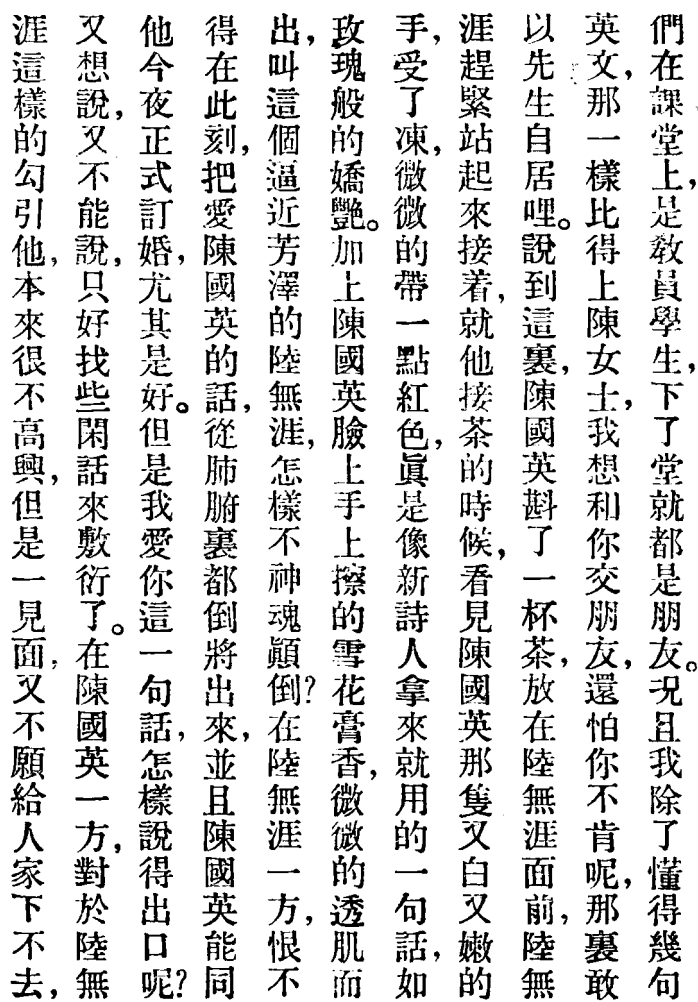 們在課堂上，是敎員學生，下了堂就都是朋友。况且我除了懂得幾句
英文，那一樣比得上陳女士，我想和你交朋友，還怕你不肯呢，那裏敢
以先生自居哩。說到這裏，陳國英斟了一杯茶，放在陸無涯面前，陸無
涯趕緊站起來接着，就他接茶的時候，看見陳國英那隻又白又嫩的
手，受了凍，微微的帶一點紅色，眞是像新詩人拿來就用的一句話，如
玫瑰般的嬌艷。加上陳國英臉上手上擦的雪花膏香，微微的透肌而
出，叫這個逼近芳澤的陸無涯，怎樣不神魂顚倒？在陸無涯一方，恨不
得在此刻，把愛陳國英的話，從肺腑裏都倒將出來，並且陳國英能同
他今夜正式訂婚，尤其是好。但是我愛你這一句話，怎樣說得出口呢？
又想說，又不能說，只好找些閑話來敷衍了。在陳國英一方，對於陸無
涯這樣的勾引他，本來很不高興，但是一見面，又不願給人家下不去，